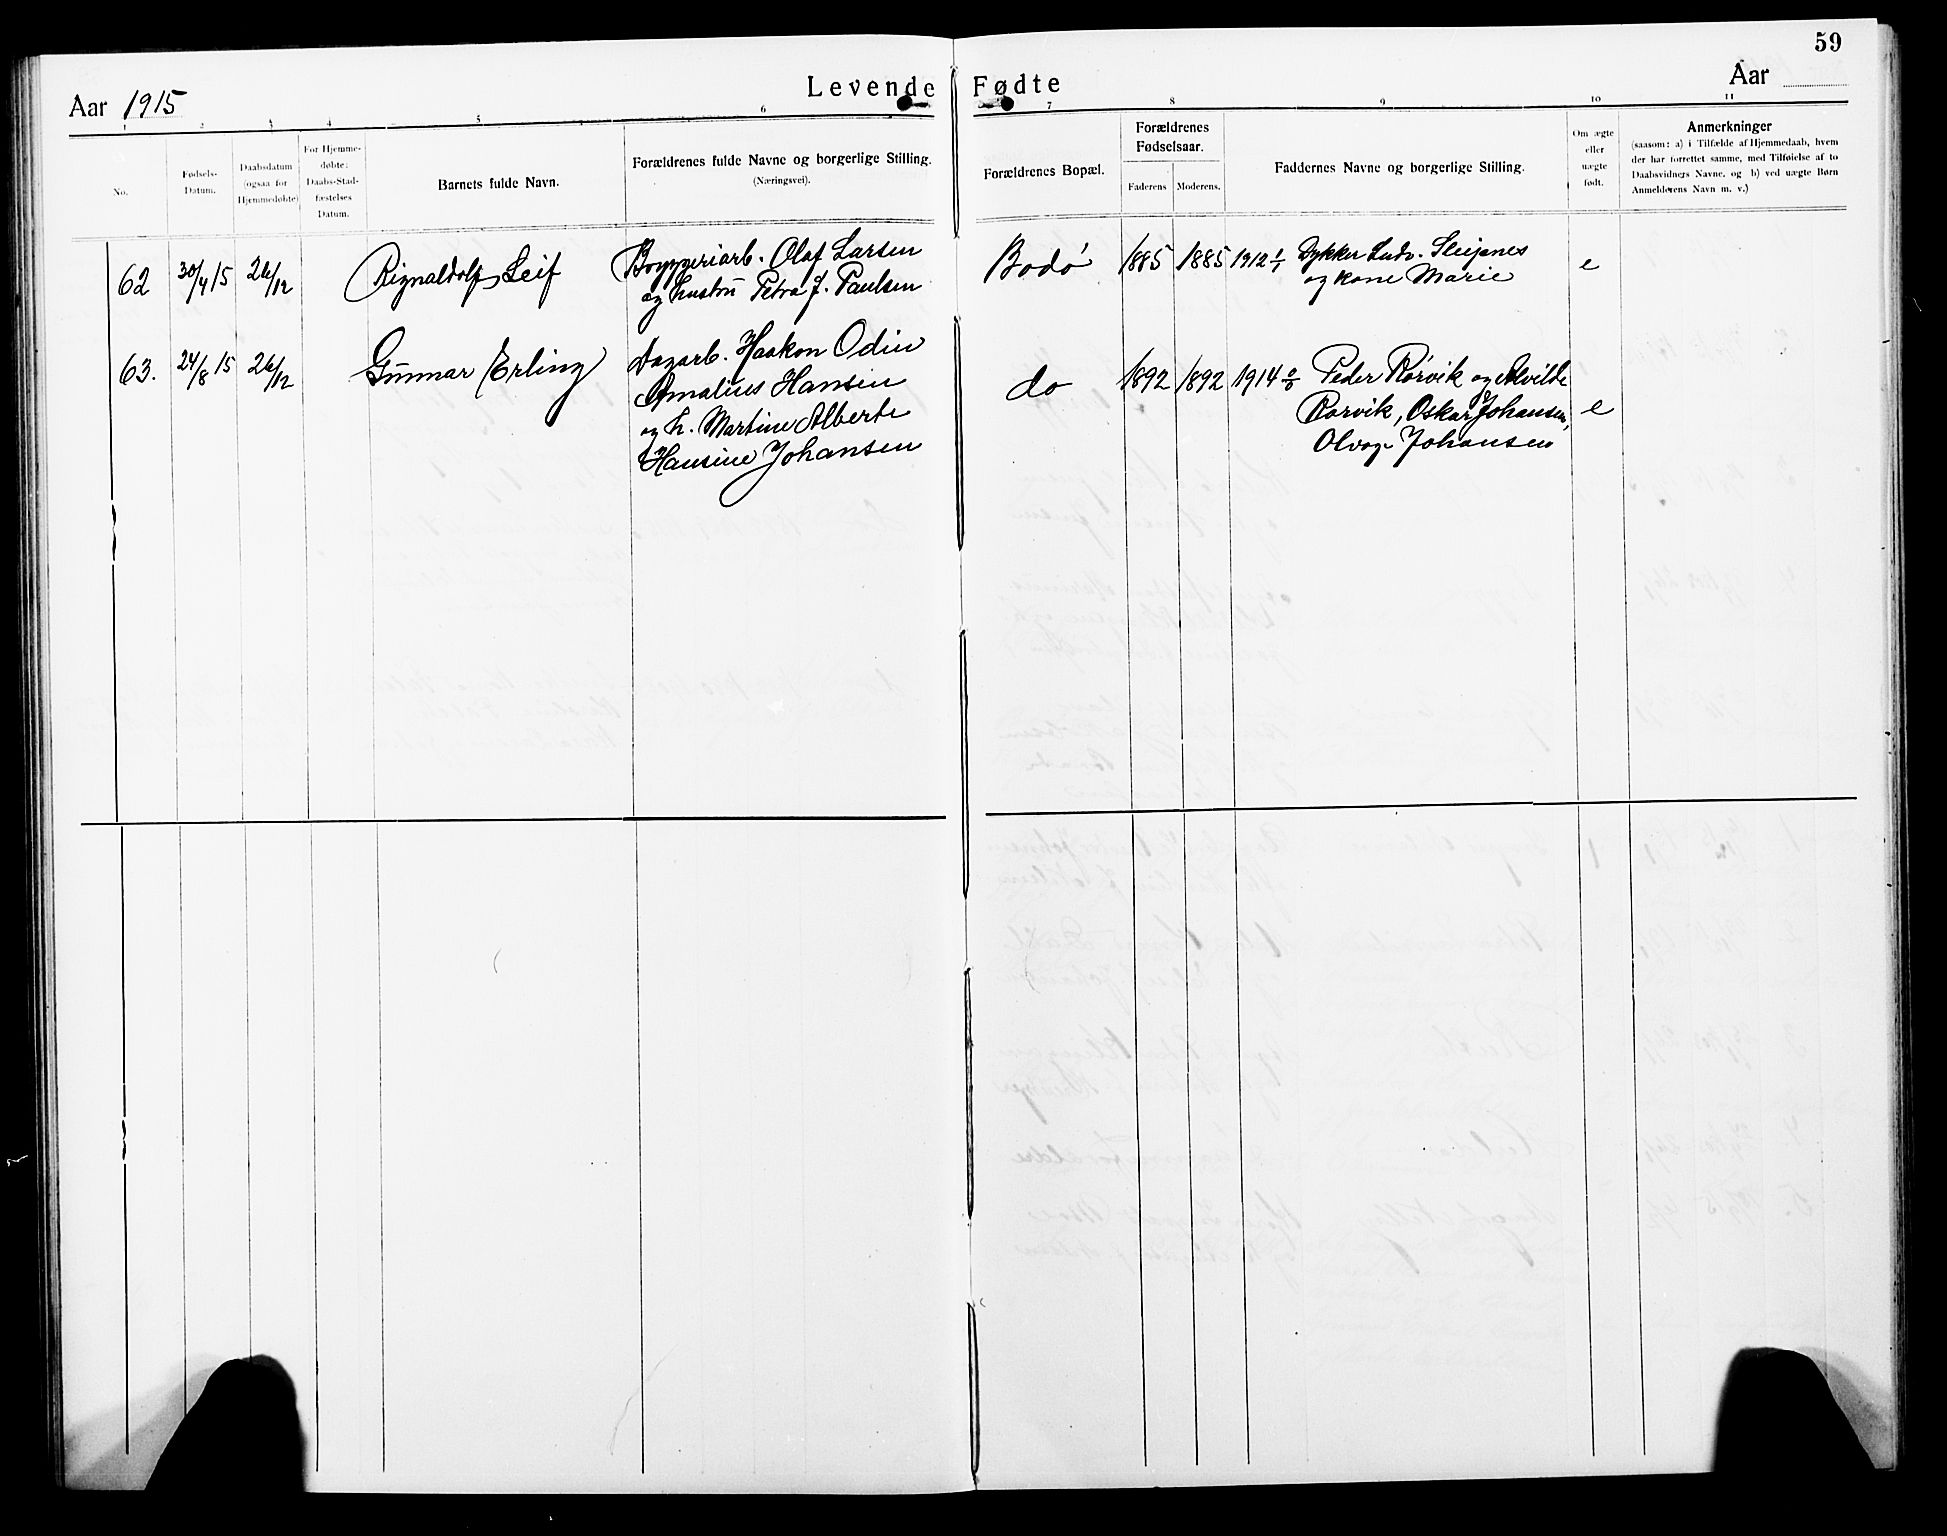 59
Levende Fødte
Aar 1915
Aar
1 2 3 4 5 6 7 8 9 10 11
No.
Fødsels-
Datum.
Daabsdatum
(ogsaa for
Hjemmedøbte)
For Hjemme-
døbte:
Daabs-Stad-
fæstelses
Datum.
Barnets fulde Navn.
Forældrenes fulde Navne og borgerlige Stilling.
(Næringsvei).
Forældrenes Bopæl.
Forældrenes
Fødselsaar.
Faderens. Moderens.
Faddernes Navne og borgerlige Stilling.
Om ægte
eller
uægte
født.
Anmerkninger
(saasom: a) i Tilfælde af Hjemmedaab, hvem
der har forrettet samme, med Tilføielse af to
Daabsvidners Navne, og b) ved uægte Børn
Anmelderens Navn m. v.)
62 30/4 15 26/12 Rignaldolf Leif Bryggeriarb. Olaf Larsen
og hustru Petra J. Paulsen
Bodø 1885 1885 1912 1/1 Dykker Ludv.
og kone Marie
e
63. 24/8 15 26/12 Gunnar Erling Dagarb. Haakon Odin
Amalius Hansen
og h. Martine Alberte
Hansine Johansen
do 1892 1892 1914 Peder Rørvik og Alvilde
Rørvik, Oskar Johansen,
Johansen
e